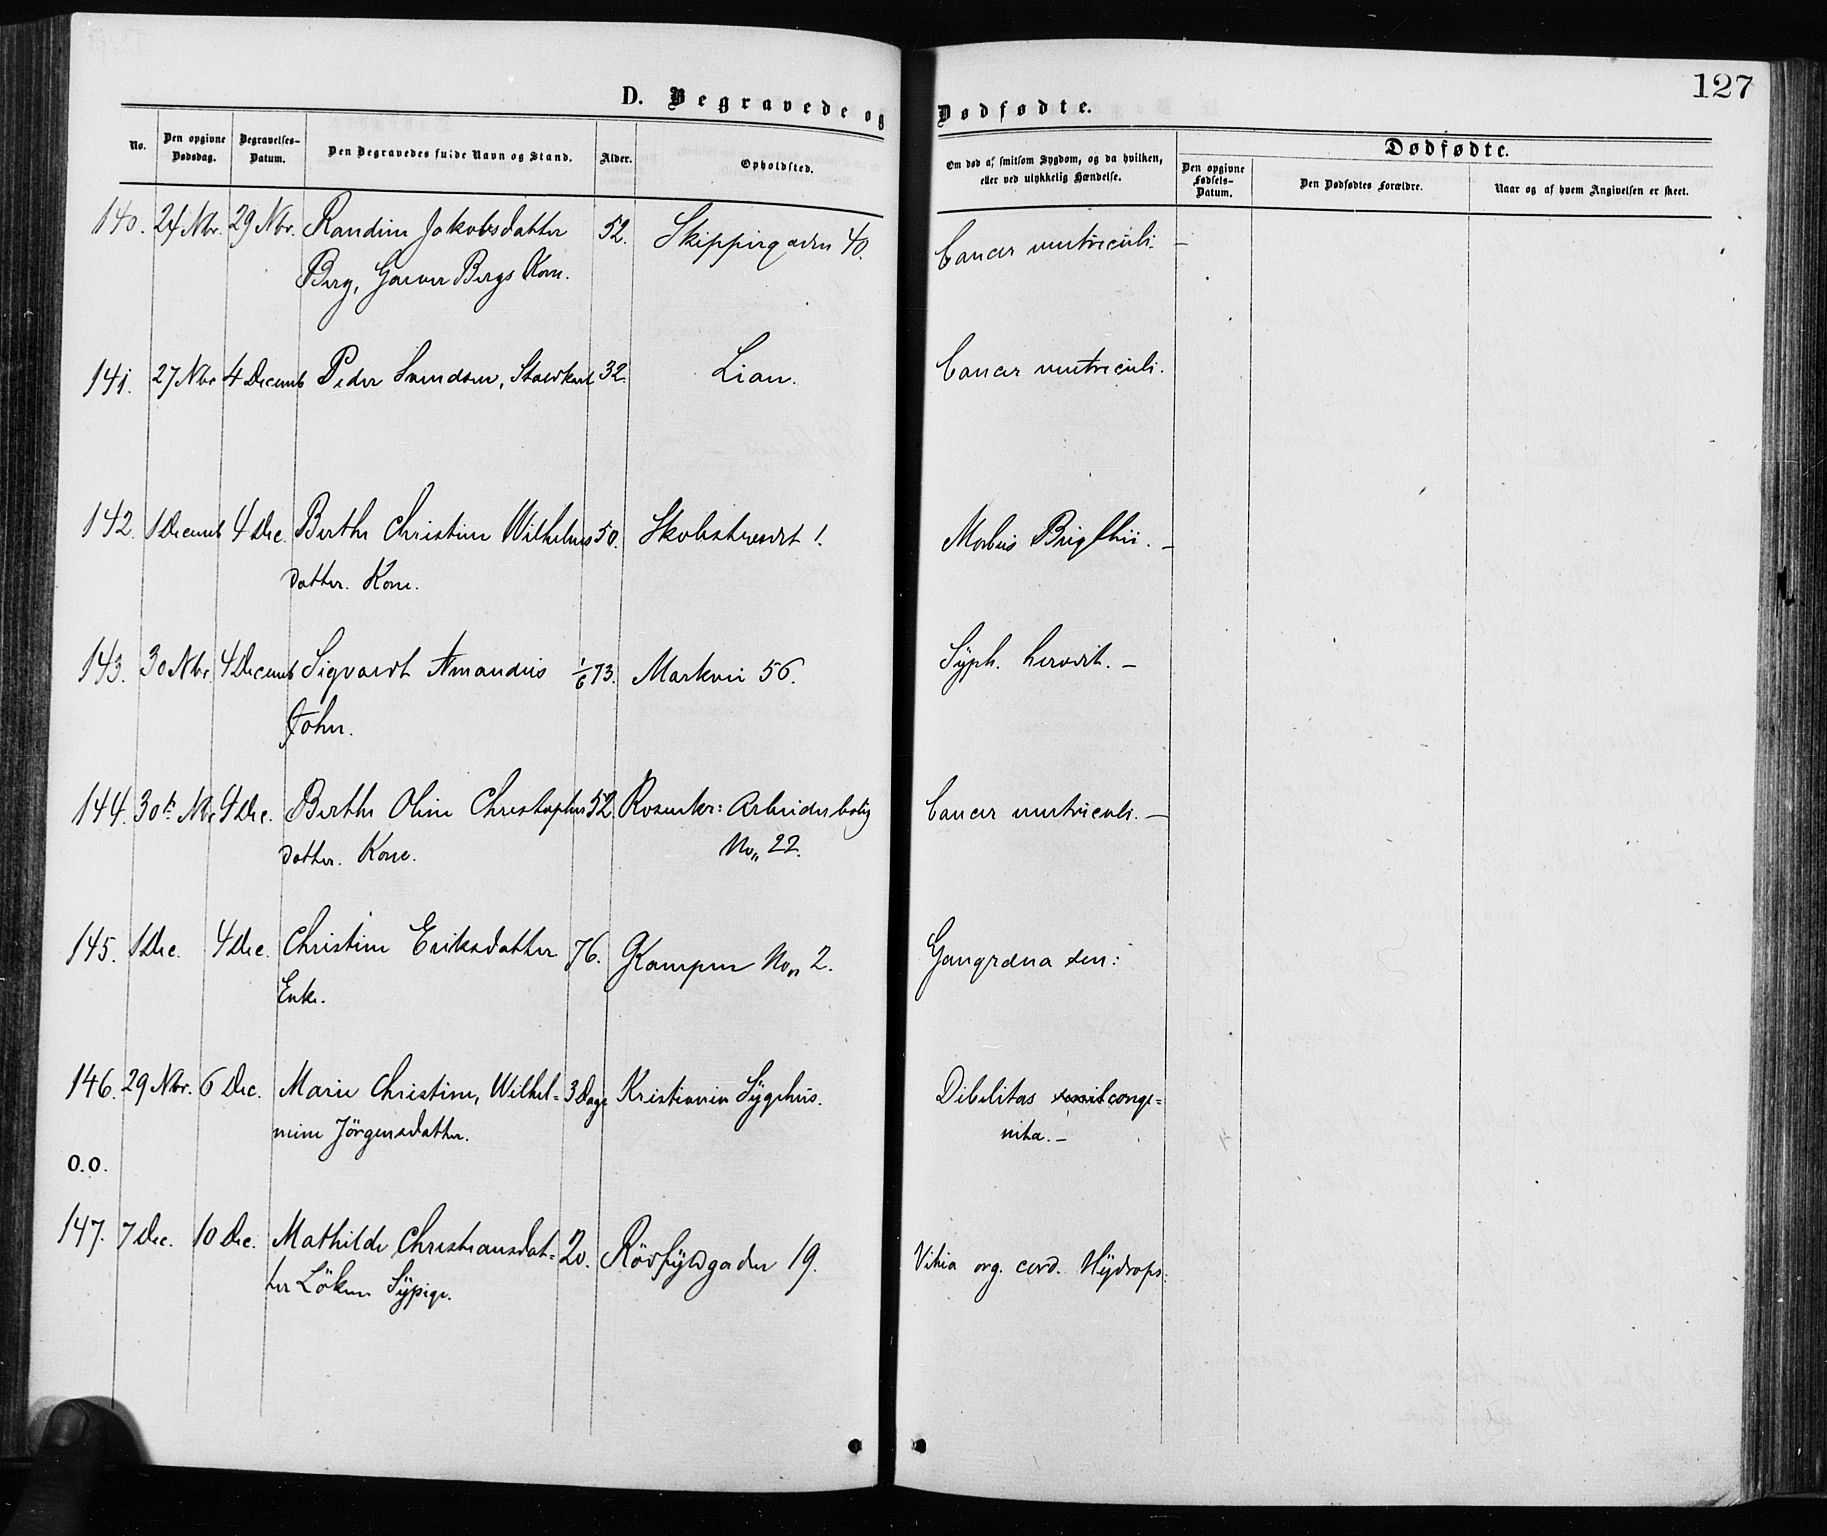 127
D. Begravede og Dødfødte.
No.
Den opgivne Dødsdag.
Begravelses-Datum.
Den Begravedes fulde Navn og Stand.
Alder.
Opholdsted.
Om død af smitsom Sygdom, og da hvilken, eller ved ulykkelig Hændelse.
Dødfødte.
Den opgivne Fødsels-Datum.
Den Dødfødtes Forældre.
Naar og af hvem Angivelsen er skeet.
140. 24 Nbr. 29 Nbr. Randine Jakobsdatter 52. Skippergaden 40. Cancer ventriculi. –
Berg, Garver Bergs Kone.
141. 27 Nbr 4 Decemb Peder Svendsen, Staldkarl 32. Lian. Cancer ventriculi.
142. 1 Decemb 4 Dec. Berthe Christine Wilhelms 50. Morbus Brigthii. –
datter. Kone.
143. 30 Nbr. 4 Decemb Sigvardt Amandus 1/6 73. Markvei 56. Syph. heredit. –
John.
144. 30te Nbr 4 Dec. Berthe Oline Christophers 52. Rosenkr: Arbeiderbolig Cancer ventriculi. –
datter. Kone. No„ 22.
145. 1 Dec. 4 Dec. Christine Eriksdatter 76. Kampen No„ 2. Gangræna sen:
Enke.
146. 29 Nbr. 6 Dec. Marie Christine, Wilhel= 3 Dage Kristiania Sygehus. Debilitas senil conge=
mine Jörgensdatter. nita. –
0.0.
147. 7 Dec. 10 Dec. Mathilde Christiansdat= 20. Rödfyldgaden 19. Vitia org. cord. Hydrops.
ter Löken Sypige.